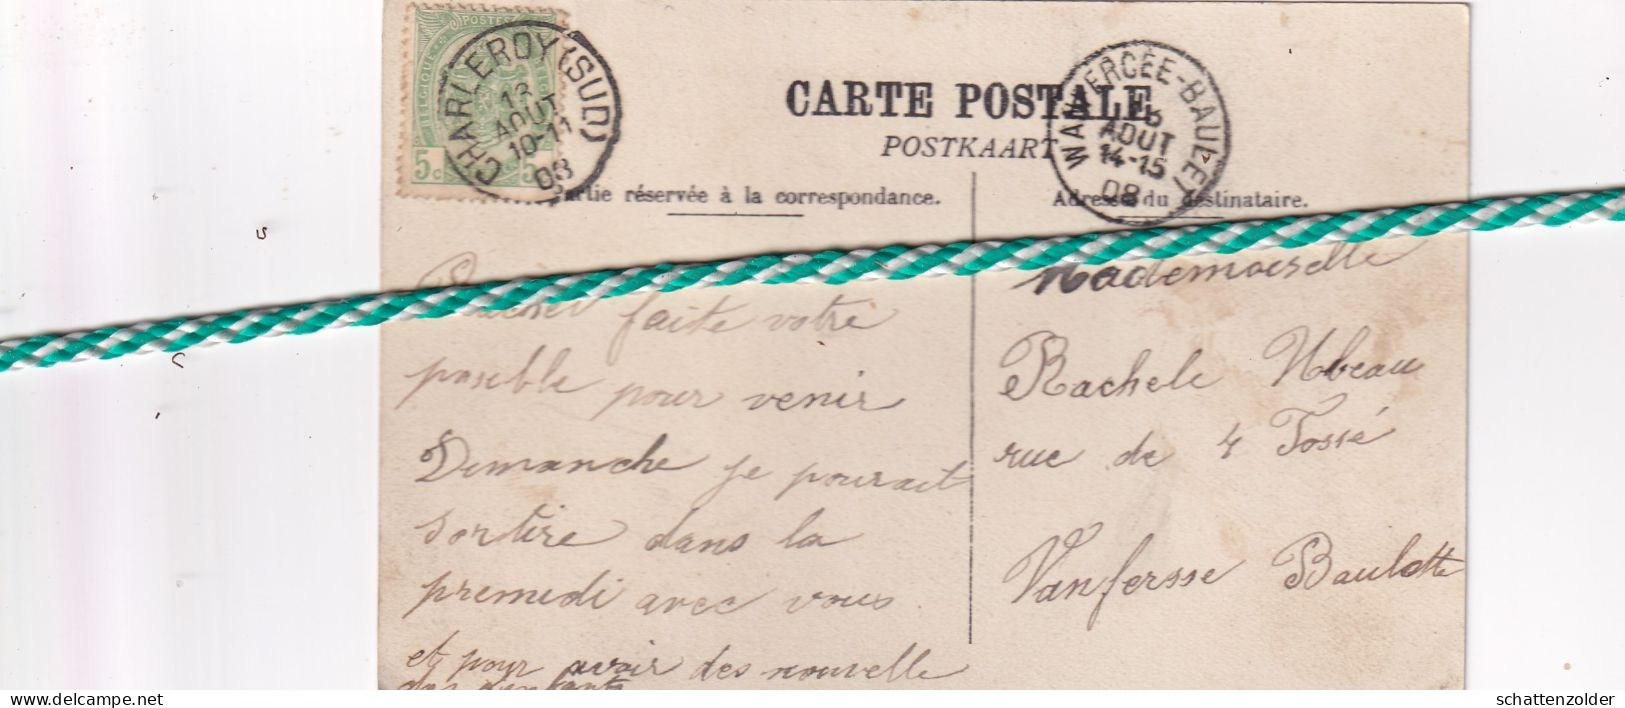 POSTES
BELGIQUE
5c 5
CHARLEROY (SUD)
13
AOUT
10-11
08
CARTE POSTALE
POSTKAART
WANFERCÉE-BAULET
AOUT
14-15
08
Partie réservée à la correspondance.
Adresse du destinataire.
faite votre
posible pour venir
Dimanche je pourait
sortire dans la
premedi avec vous
et pour avoir des nouvelle
des
Mademoiselle
Rachele
rue de 4 Fossé
Vanfersse Baulotte
schattenzolder